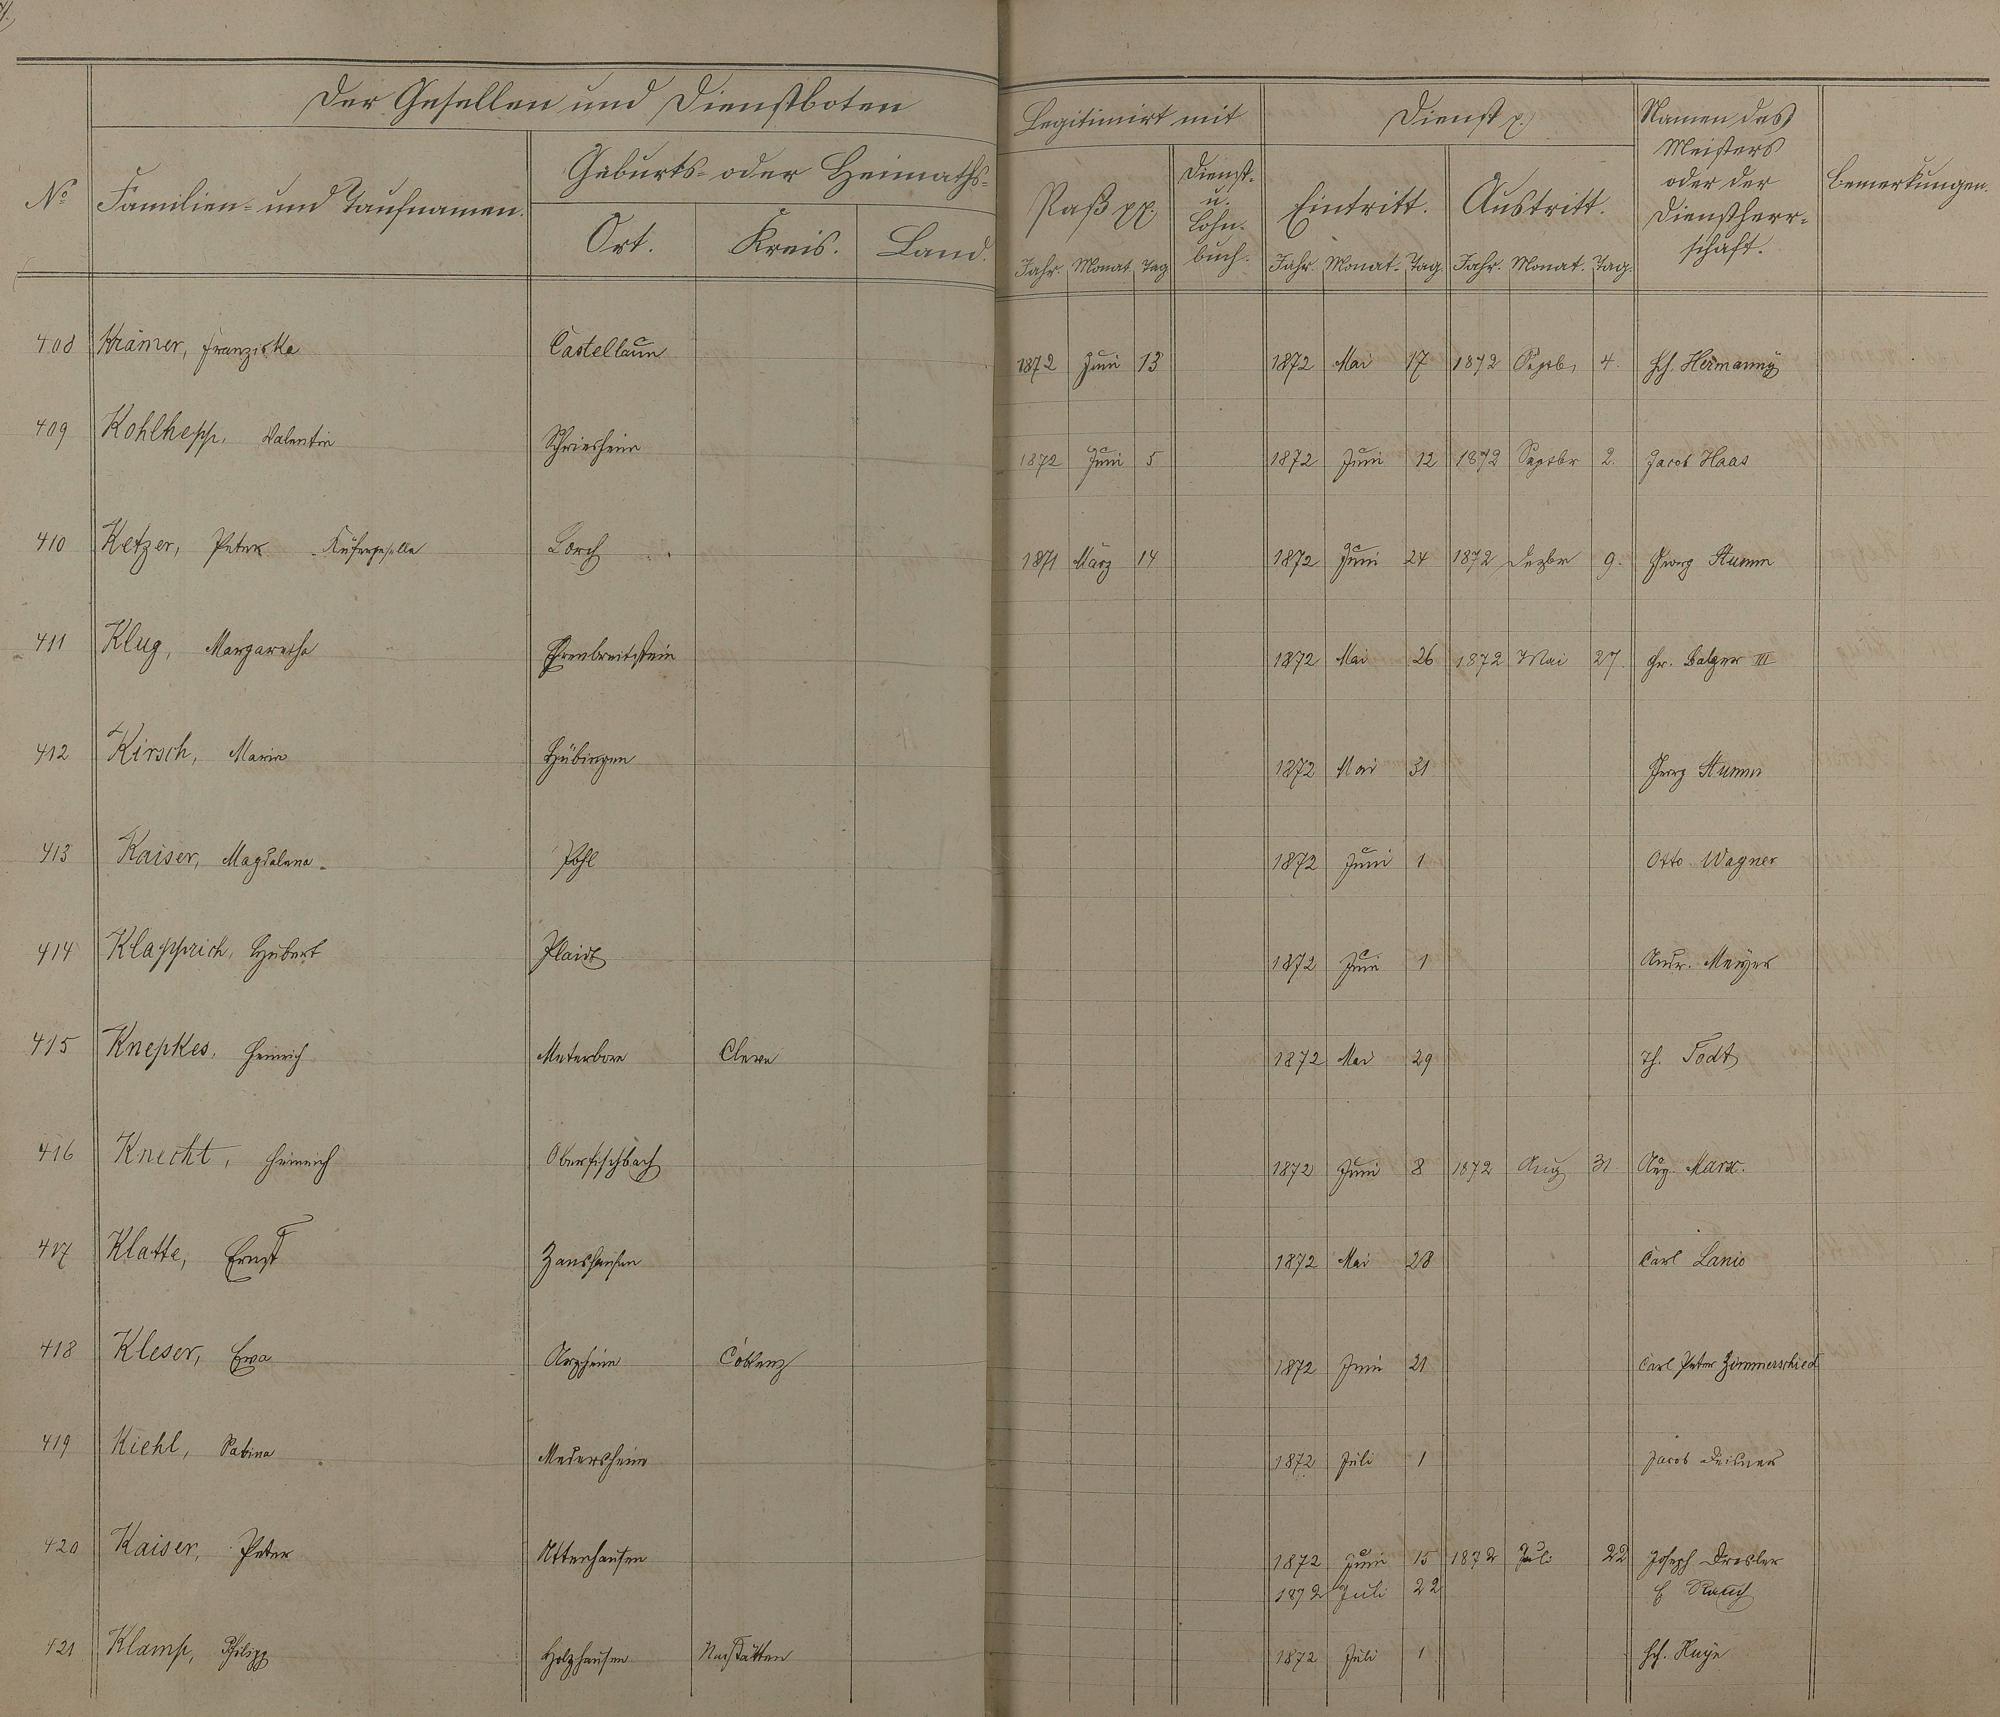 Der Gesellen und Dienstboten
Legitimirt mit
Dienst p.
Namen des Meisters oder der Dienstherrschaft.
Bemerkungen.
No
Familien- und Taufnamen.
Geburts- oder Heimaths-
Ort. Kreis. Land.
Paß pp.
Dienst- u. Lohn- buch.
Eintritt. Austritt.
Jahr. Monat Tag Jahr. Monat. Tag Jahr. Monat. Tag.
408 Krämer, Franziska Castellaun 1872 Juni 13 1872 Mai 17 1872 Septb. 4. Hch. Hermanny
409 Kohlhepp, Valentin Schriesheim 1872 Juni 5 1872 Juni 12 1872 Septbr 2. Jacob Haas
410 Ketzer, Peter Küfergeselle Lorch 1871 März 14 1872 Juni 24 1872 Dezbr 9. Georg Stumm
411 Klug, Margaretha Ehrenbreitstein 1872 Mai 26 1872 Mai 27. Balzer III
412 Kirsch, Maria Hübingen 1872 Mai 31 Georg Stumm
413 Kaiser, Magdalena Pohl 1872 Juni 1 Otto Wagner
414 Klapprich, Hubert Plaidt 1872 Juni 1 Andr. Meyer
415 Knepkes, Heinrich Materborn Cleve 1872 Mai 29 Th. Todt
416 Knecht, Heinrich Oberfischbach 1872 Juni 8 1872 Aug 31. Aug. Marx.
417 Klatte, Ernst Zanshausen 1872 Mai 28 Carl Lanio
418 Kleser, Eva Arzheim Coblenz 1872 Juni 21 Carl Peter Zimmerschied
419 Kiehl, Sabina Medersheim 1872 Juli 1 Jacob Deisner
420 Kaiser, Peter Attenhausen 1872 Juni 15 1872 Juli 22 Joseph Drosler
1872 Juli 22 Rauch
421 Klamp, Philipp Holzhausen Nastätten 1872 Juli 1 Hch.